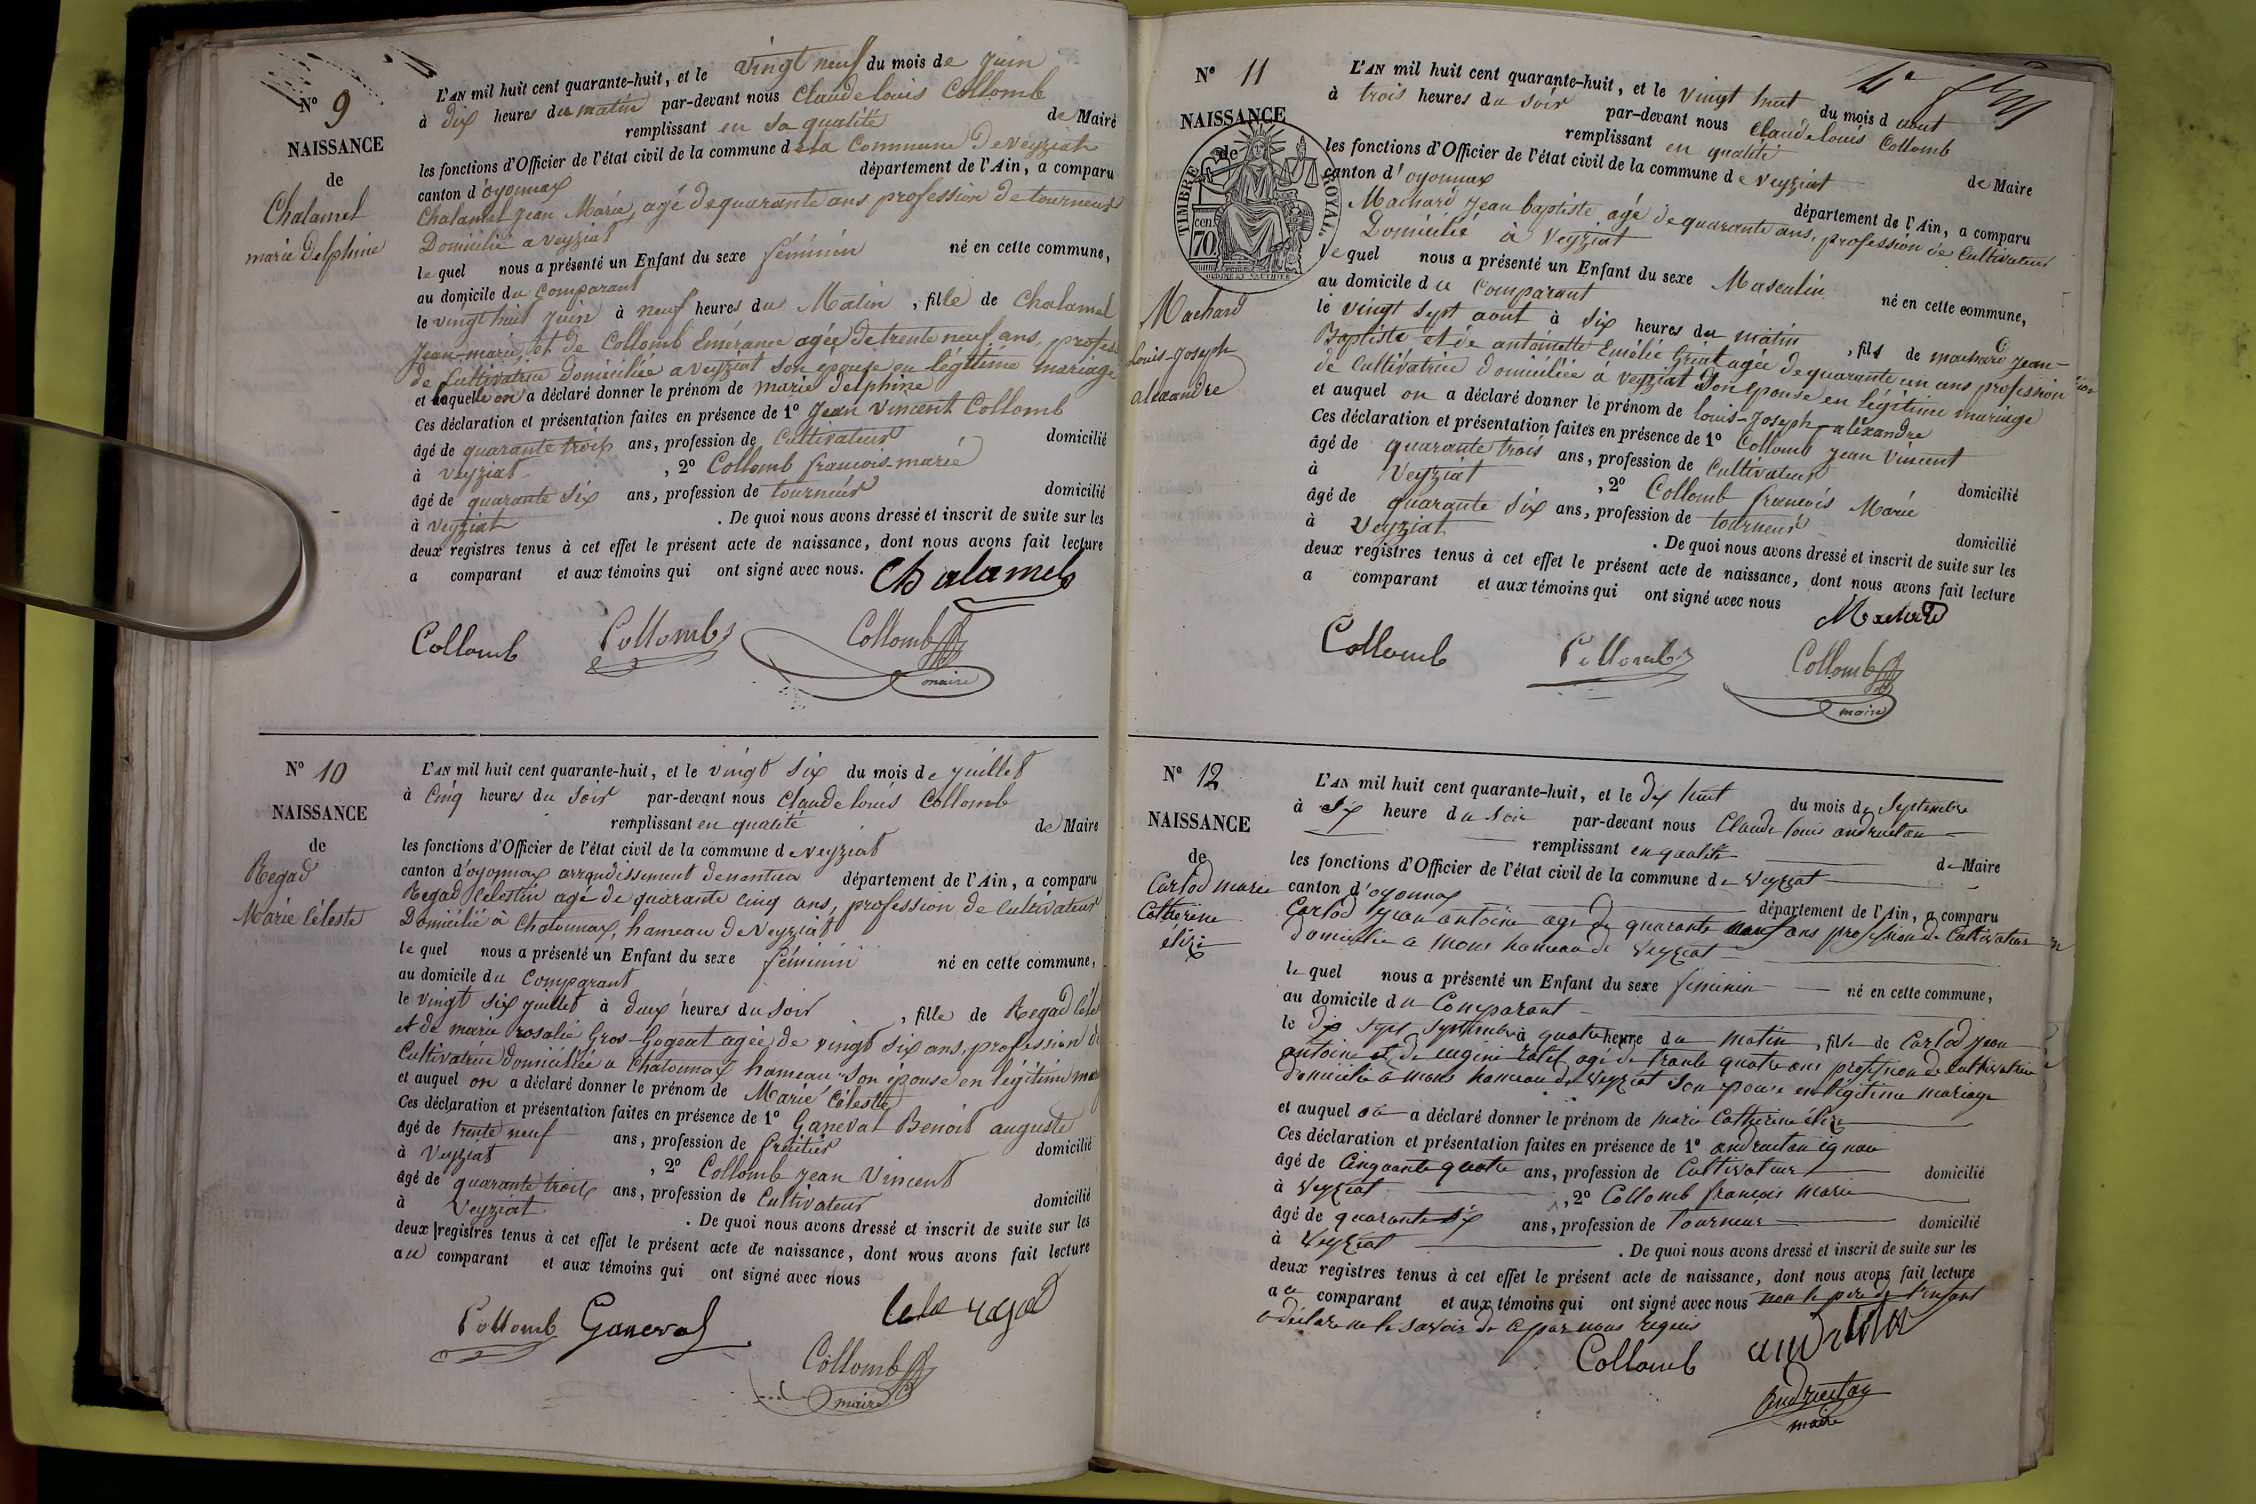 N° 9
NAISSANCE
de
Chalamel
marie Delphine
L'AN mil huit cent quarante-huit, et le vingt neuf du mois de Juin
à dix heures du matin par-devant nous Claude louis Collomb
remplissant en sa qualité de Maire
les fonctions d'Officier de l'état civil de la commune de la Commune De Veyziat
canton d'oyonnax département de l'Ain, a comparu
Chalamel Jean Marie, agé de quarante ans profession de tourneur
Domicilié a Veyziat
le quel nous a présenté un Enfant du sexe féminin né en cette commune,
au domicile du Comparant
le vingt huit Juin à neuf heures du Matin , fille de Chalamel
Jean-marie, et de Collomb Emérance agée de trente neuf ans, profes
de Cultivatrice domiciliée a Veyziat son épouse en légitime mariage
et laquelle on a déclaré donner le prénom de marie delphine
Ces déclaration et présentation faites en présence de 1° Jean Vincent Collomb
âgé de quarante trois ans, profession de Cultivateur domicilié
à Veyziat , 2° Collomb francois-marie
âgé de quarante six ans, profession de tourneur domicilié
à Veyziat . De quoi nous avons dressé et inscrit de suite sur les
deux registres tenus à cet effet le présent acte de naissance, dont nous avons fait lecture
a comparant et aux témoins qui ont signé avec nous. Chalamel
Collomb Collomb Collomb
maire
N° 10
NAISSANCE
de
Regad
Marie Céleste
L'AN mil huit cent quarante-huit, et le vingt six du mois de Juillet
à Cinq heures du Soir par-devant nous Claude louis Collomb
remplissant en qualité de Maire
les fonctions d'Officier de l'état civil de la commune de Veyziat
canton d'oyonnax arrondissement de nantua département de l'Ain, a comparu
Regad Célestin agé de quarante cinq ans, profession de Cultivateur
Domicilié à Chatonnax, hameau de Veyziat
le quel nous a présenté un Enfant du sexe féminin né en cette commune,
au domicile du Comparant
le vingt six juillet à deux heures du Soir , fille de Regad Céles
et de marie rosalie Gros-Gogeat agée de vingt six ans, profession de
Cultivatrice domiciliée a Chatonnax hameau Son épouse en légitime ma
et auquel on a déclaré donner le prénom de Marie Céleste
Ces déclaration et présentation faites en présence de 1° Ganeval Benoit auguste
âgé de trente neuf ans, profession de fruitier domicilié
à Veyziat , 2° Collomb Jean Vincent
âgé de quarante trois ans, profession de Cultivateur domicilié
à Veyziat . De quoi nous avons dressé et inscrit de suite sur les
deux registres tenus à cet effet le présent acte de naissance, dont nous avons fait lecture
au comparant et aux témoins qui ont signé avec nous
Collomb Ganeval
Collomb
maire
N° 11
NAISSANCE
de
TIMBRE ROYAL
70
Machard
Louis-Joseph
alexandre
L'AN mil huit cent quarante-huit, et le vingt huit du mois d aout
à trois heures du soir par-devant nous Claude louis Collomb
remplissant en qualité de Maire
les fonctions d'Officier de l'état civil de la commune de Veyziat
canton d'oyonnax département de l'Ain, a comparu
Machard Jean baptiste agé de quarante ans, profession de Cultivateur
Domicilié à Veyziat
le quel nous a présenté un Enfant du sexe Masculin né en cette commune,
au domicile du Comparant
le vingt sept aout à six heures du matin , fils de machard Jean-
Baptiste et de antoinette Emélie agée de quarante un ans profession
de Cultivatrice domiciliée à Veyziat Son épouse en légitime mariage
et auquel on a déclaré donner le prénom de louis-Joseph-alexandre
Ces déclaration et présentation faites en présence de 1° Collomb Jean Vincent
âgé de quarante trois ans, profession de Cultivateur domicilié
à Veyziat , 2° Collomb francois Marie
âgé de quarante six ans, profession de tourneur domicilié
à Veyziat . De quoi nous avons dressé et inscrit de suite sur les
deux registres tenus à cet effet le présent acte de naissance, dont nous avons fait lecture
a comparant et aux témoins qui ont signé avec nous Machard
Collomb Collomb Collomb
maire
N° 12
NAISSANCE
de
Carlod marie
Catherine
élize
L'AN mil huit cent quarante-huit, et le dix huit du mois de Septembre
à Six heure du soir par-devant nous Claude louis andruetan
remplissant en qualité de Maire
les fonctions d'Officier de l'état civil de la commune de Veyziat
canton d'oyonnax département de l'Ain, a comparu
Carlod Jean antoine age de quarante ans profession de Cultivateur
domicilie a mons hameau de Veyziat
le quel nous a présenté un Enfant du sexe féminin né en cette commune,
au domicile du Comparant
le dix Sept Septembre à quatre heure du matin , fille de Carlod Jean
antoine et de eugine agé de trante quatre ans profession de Cultivatrice
domicilié a mons hameau de Veyziat son epouse en légitime mariage
et auquel on a déclaré donner le prénom de marie Catherine élize
Ces déclaration et présentation faites en présence de 1° andruetan ignace
âgé de Cinquante quatre ans, profession de Cultivateur domicilié
à Veyziat , 2° Collomb françois marie
âgé de quarante six ans, profession de Tourneur domicilié
à Veyziat . De quoi nous avons dressé et inscrit de suite sur les
deux registres tenus à cet effet le présent acte de naissance, dont nous avons fait lecture
au comparant et aux témoins qui ont signé avec nous non le pere de l'enfant
a déclaré ne le savoir de ce par nous requis
Collomb
andruetan
maire